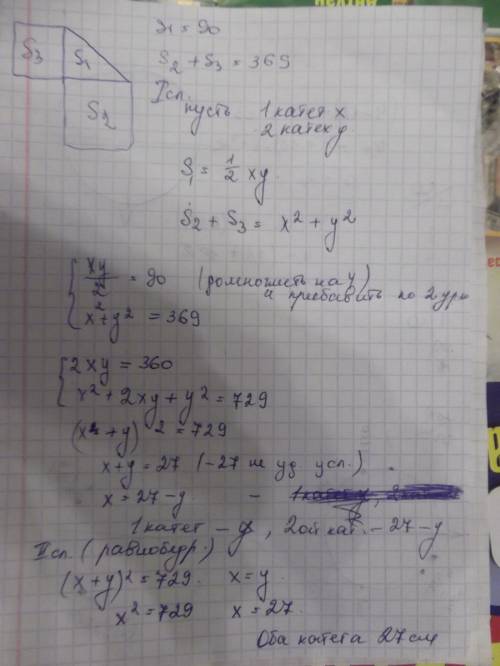 S₁ = 90
S₃ S₁
S₂ + S₃ = 369
S₂
I сп.
пусть 1 катет x
2 катет y
S₁ = 1/2 xy
S₂ + S₃ = x² + y²
xy/2 = 90 (домножить на 4)
и прибавить ко 2 урн
x² + y² = 369
2xy = 360
x² + 2xy + y² = 729
(x + y)² = 729
x + y = 27 (-27 не уд усл.)
x = 27 - y -
1 катет - y, 2ой кат. - 27 - y
II сп. (равнобедр.)
(x + y)² = 729 x = y
x² = 729 x = 27
Оба катета 27 см